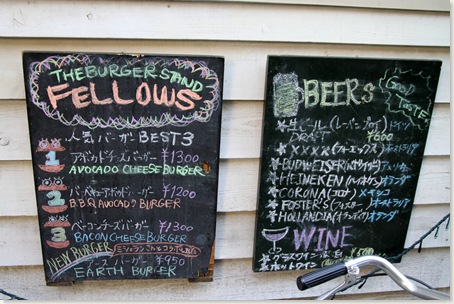 THE BURGER STAND
FELLOWS
人気バーガー BEST3
1 アボカドチーズバーガー ¥1300
AVOCADO CHEESE BURGER
2 バーベキューアボカドバーガー ¥1200
B.B.Q AVOCADO BURGER
3 ベーコンチーズバーガー ¥1300
BACON CHEESE BURGER
NEW BURGER
バーガー ¥950
EARTH BURGER
BEERs
GOOD TASTE!
生ビール (レーベンブロイ) ドイツ
DRAFT ¥600
XXXX (フォーエックス) オーストラリア
BUDWEISER アメリカ
HEINEKEN (ハイネケン) オランダ
CORONA (コロナ) メキシコ
FOSTER'S (フォスター) オーストラリア
HOLLANDIA (オランディア) オランダ
WINE
グラスワイン
ホットワイン